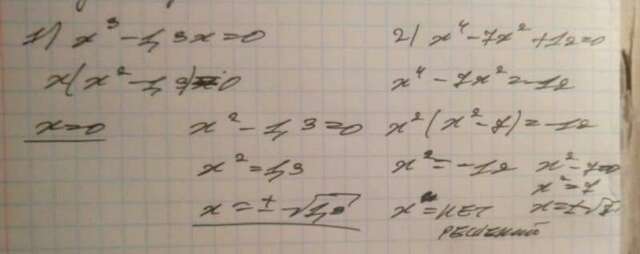 1) x³ - 1,3x = 0
x(x² - 1,3) = 0
x = 0
x² - 1,3 = 0
x² = 1,3
x = ± √1,3
2) x⁴ - 7x² + 12 = 0
x⁴ - 7x² = -12
x² (x² - 7) = -12
x² = -12
x = нет
решений
x² - 7 = 0
x² = 7
x = ± √7